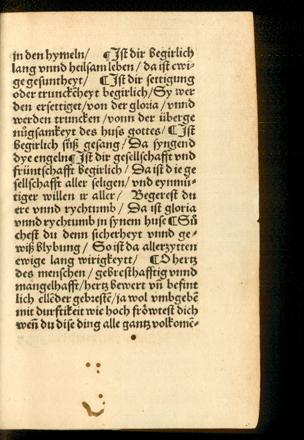 in den hymeln/ ¶ Ist dir begirlich
lang vnnd heilsam leben/ da ist ewi-
ge gesuntheyt/ ¶ Ist dir settigung
oder trunckēheyt begirlich/ Sy wer
den ersettiget/ von der gloria/ vnnd
werden truncken/ vonn der überge
nůgsamkeyt des huss gottes/ ¶ Ist
begirlich süß gesang/ Da syngend
dye engeln ¶ Ist dir gesellschafft vnd
früntschafft begirlich/ Da ist die ge
sellschafft aller seligen/ vnd eynmü-
tiger willen ir aller/ Begerest du
ere vnnd rychtumb/ Da ist gloria
vnnd rychtumb in synem huse ¶ Sů
chest du denn sicherheyt vnnd ge-
wiß blybung/ So ist da allerzytten
ewige lang wirigkeytt/ ¶ O hertz
des menschen/ gebresthafftig vnnd
mangelhafft/ hertz bewert vñ befint
lich ellēder gebrestē/ ja wol vmbgebē
mit durfftikeit wie hoch fröwtest dich
weñ du dise ding alle gantz volkomē-